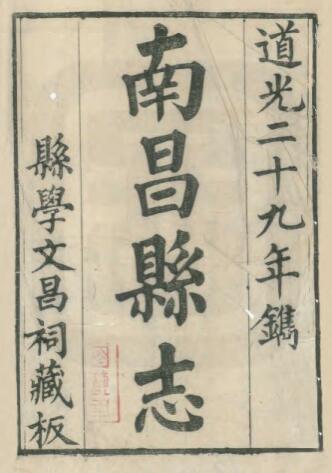 道光二十九年鐫
南昌縣志
縣學文昌祠藏板